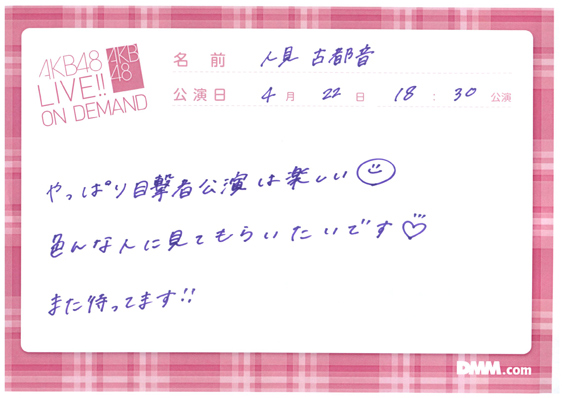 AKB48
LIVE!!
ON DEMAND
AKB
48
名前 人見 古都音
公演日 4月 22日 18:30 公演
やっぱり目撃者公演は楽しい
色んな人に見てもらいたいです
また待ってます!!
DMM.com